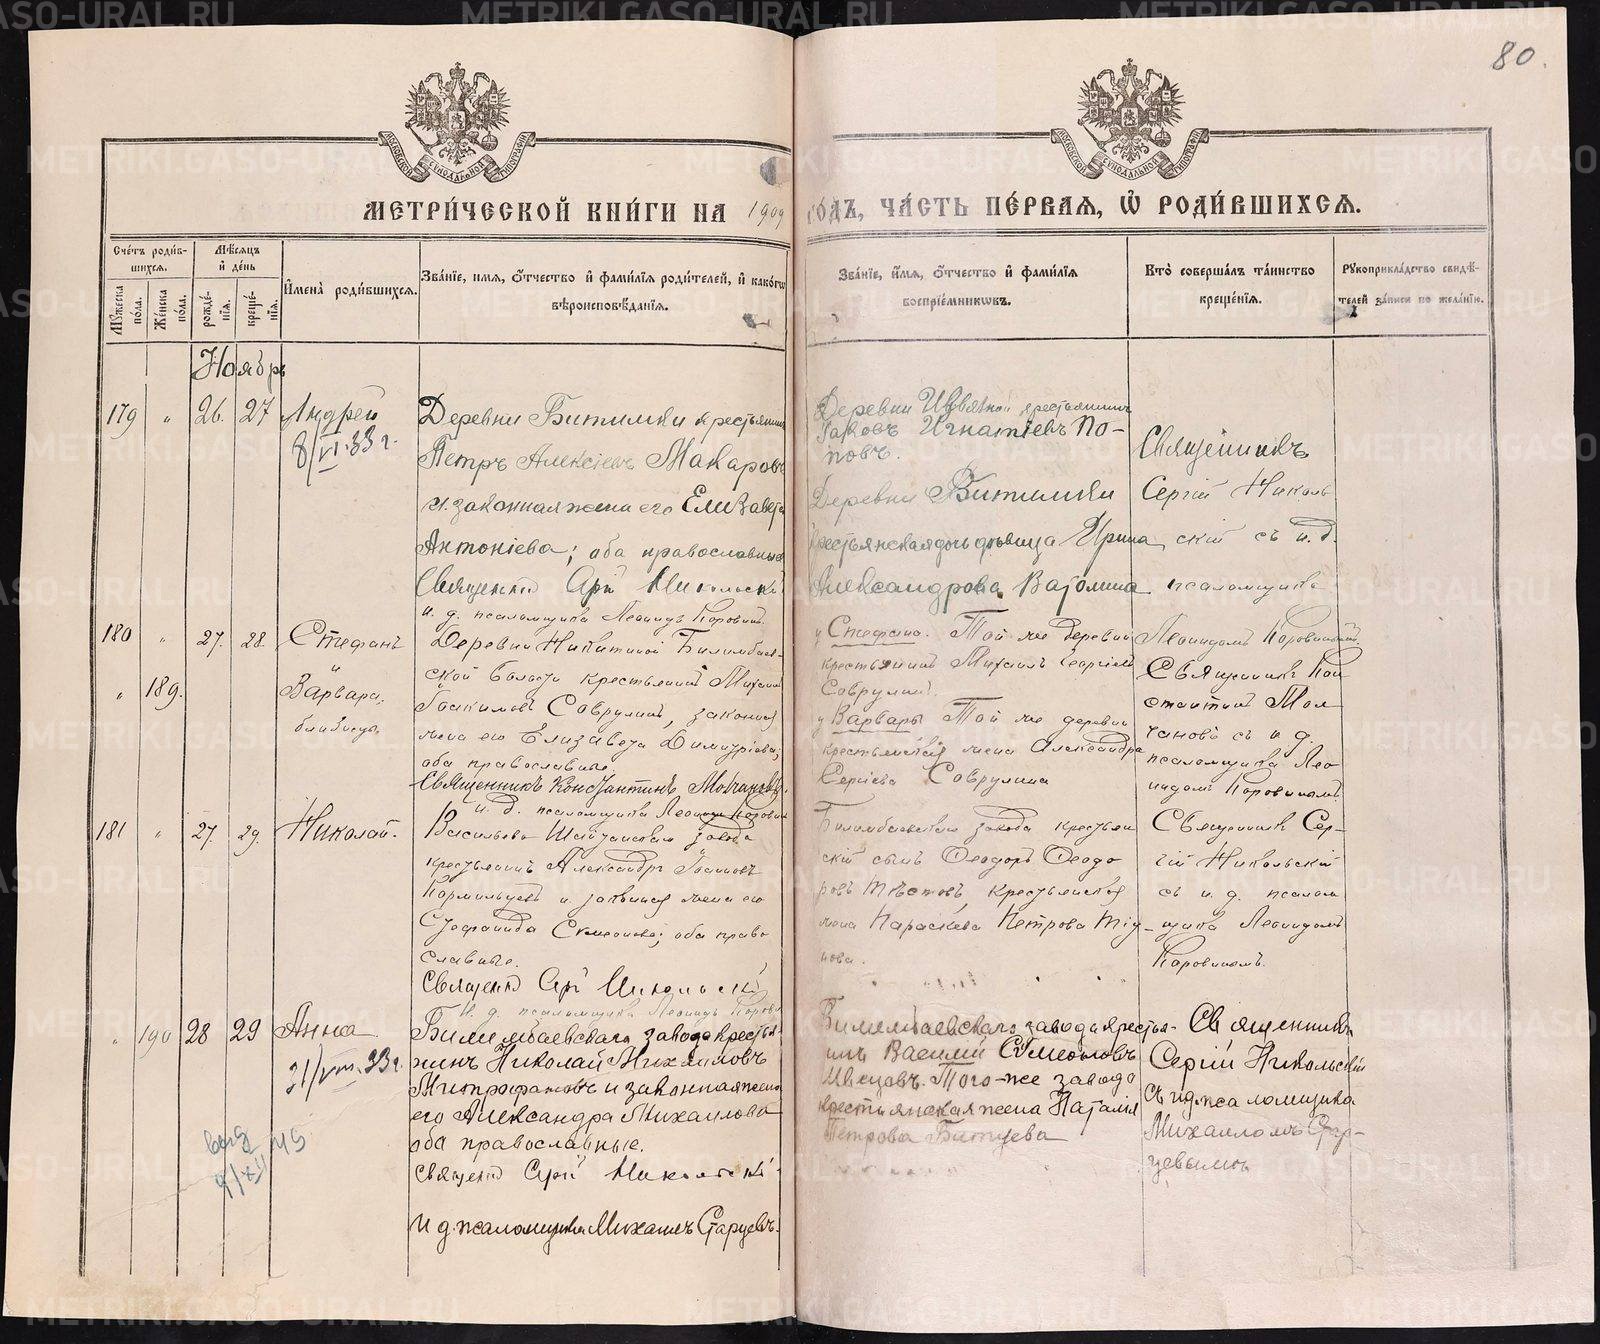 80.
МОСКОВСКОЙ СѴНОДАЛЬНОЙ ТИПОГРАФІИ
МОСКОВСКОЙ СѴНОДАЛЬНОЙ ТИПОГРАФІИ
МЕТРИ́ЧЕСКОЙ КНИ́ГИ НА 1909 ГО́ДЪ, ЧА́СТЬ ПЕ́РВАЯ, Ѡ҆ РОДИ́ВШИХСЯ.
Сче́тъ роди́вшихся.
Му́жеска по́ла.
Же́нска по́ла.
Мѣ́сяцъ и҆ де́нь
рожде́нїя.
креще́нїя.
И҆мена̀ роди́вшихся.
Зва́нїе, и҆мя, о҆́тчество и҆ фами́лїя роди́телей, и҆ како́гѡ
вѣроисповѣ́данїя.
Зва́нїе, и҆́мя, о҆́тчество и҆ фами́лїя
воспріе́мникѡвъ.
Кто̀ соверша́лъ та́инство
креще́нїя.
Рꙋкоприкла́дство свидѣ́-
телей за́писи по жела́нїю.
Ноябрь
179 " 26. 27 Андрей
8/VI.33 г.
Деревни Битимки крестьянинъ
Петръ Алексіевъ Макаровъ
и законная жена его Елизавета
Антоніева; оба православные
Священникъ Сергій Никольскій
и. д. псаломщика Леонидъ Коровинъ.
Деревни Извѣзной крестьянинъ
Іаковъ Игнатіевъ По-
повъ.
Деревни Битимки
Крестьянская дочь дѣвица Ирина
Александрова Ватолина
Священникъ
Сергій Николь
скій съ и. д.
псаломщика
Леонидомъ Коровинымъ
180 " 27. 28. Стефанъ
и
" 189. Варвара,
близнецы.
Деревни Никитиной Билимбаев-
ской волости крестьянинъ Михаилъ
Іоакимовъ Саврулинъ, законная
жена его Елизавета Димитріева;
оба православные.
Священникъ Константинъ Молчановъ
и. д. псаломщика Леонидъ Коровинъ
у Стефана. Той же деревни
крестьянинъ Михаилъ Георгіевъ
Саврулинъ.
у Варвары Той же деревни
крестьянская жена Александра
Сергіева Саврулина
Священникъ Кон
стантинъ Мол
чановъ съ и д.
псаломщика Лео
нидомъ Коровинымъ.
181 " 27. 29. Николай.
Васильево Шайтанскаго завода
крестьянинъ Александръ Іоанновъ
Кормильцевъ и законная жена его
Стефанида Симеонова; оба право
славные.
Священникъ Сергій Никольскій
и. д. псаломщика Леонидъ Коровинъ
Билимбаевскаго завода крестьян
скій сынъ Ѳеодоръ Ѳеодо
ровъ, крестьянская
жена Параскева Петрова
нова.
Священникъ Сер-
гій Никольскій
съ и. д. псалом
щика Леонидомъ
Коровинымъ.
" 190 28 29 Анна
21/VIII.33 г.
4/XII 45
Билимбаевскаго завода кресть-
янинъ Николай Михаиловъ
Митрофановъ и законная жена
его Александра Михаилова
оба православные.
Священникъ Сергій Никольскій
И д. псаломщика Михаилъ Старцевъ.
Билимбаевскаго завода крестья-
нинъ Василій Симеоновъ
Швецовъ. Того-же завода
крестьянская жена Наталія
Петрова
Священникъ
Сергій Никольскій
съ и д. псаломщика
Михаиломъ Стар-
цевымъ
METRIKI.GASO-URAL.RU